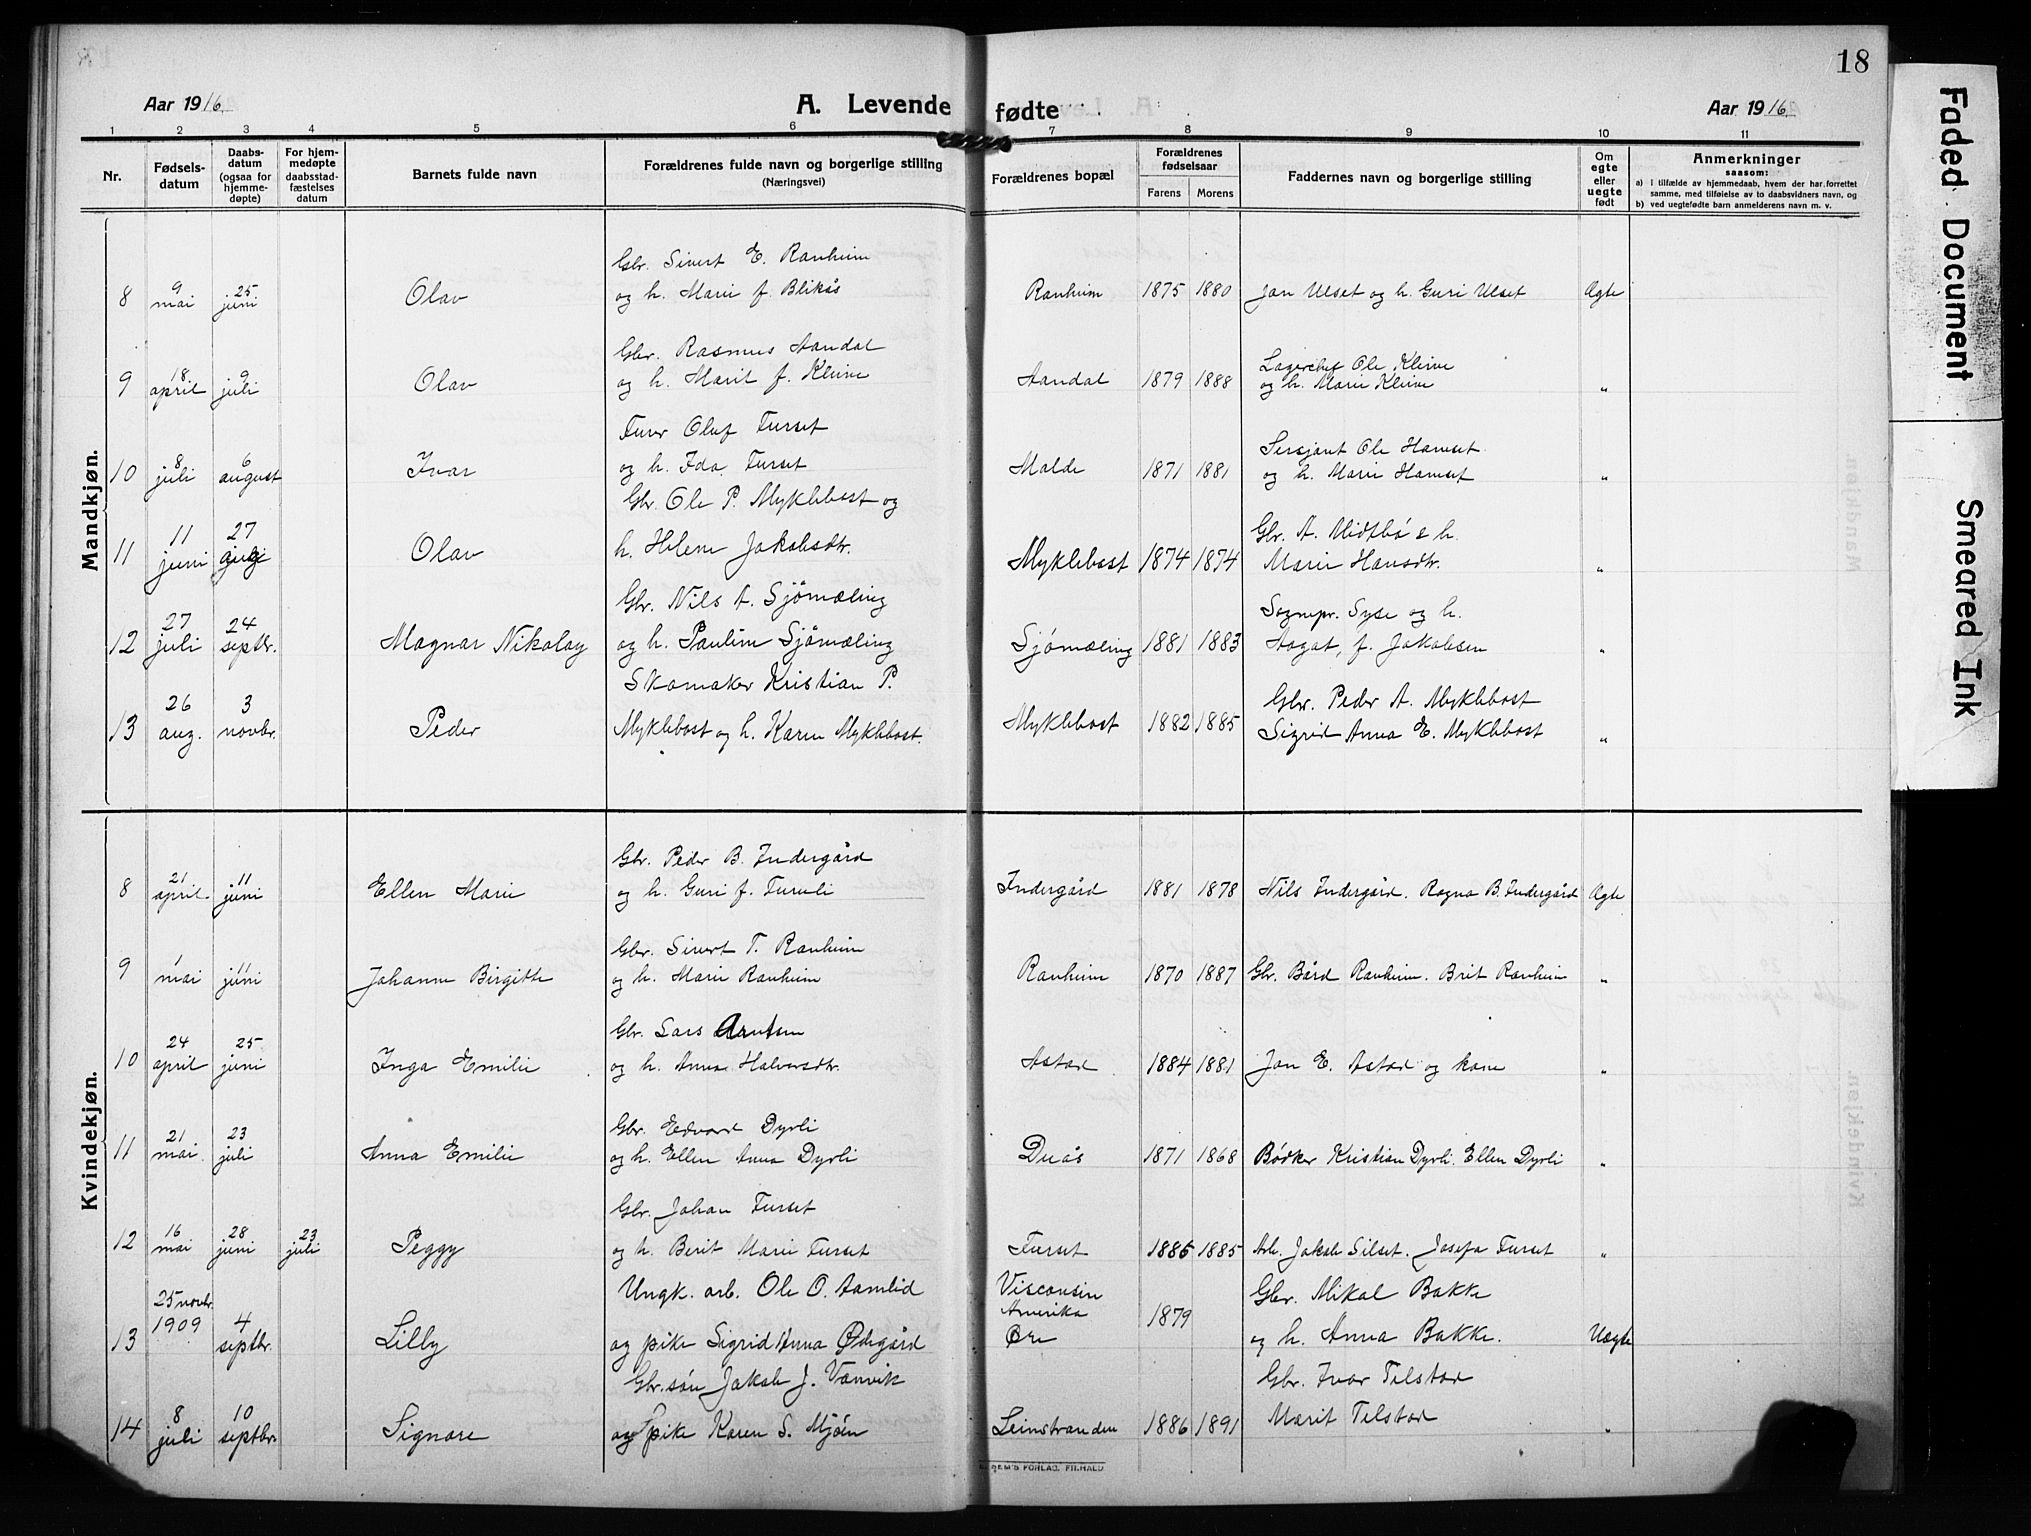 18
Aar 1916
A. Levende fødte
Aar 1916
1 2 3 4 5 6 7 8 9 10 11
Nr.
Fødsels-
datum
Daabs-
datum
(ogsaa for
hjemme-
døpte)
For hjem-
medøpte
daabsstad-
fæstelses
datum
Barnets fulde navn
Forældrenes fulde navn og borgerlige stilling
(Næringsvei)
Forældrenes bopæl
Forældrenes
fødselsaar
Farens Morens
Faddernes navn og borgerlige stilling
Om
egte
eller
uegte
født
Anmerkninger
saasom:
a) I tilfælde av hjemmedaab, hvem der har forrettet
samme, med tilføielse av to daabsvidners navn, og
b) ved uegtefødte barn anmelderens navn m. v.
Mandkjøn.
Gbr. Sivert E. Ranheim
8 9 mai 25 juni Olav og h. Marie f. Blikås Ranheim 1875 1880 Jon Ulset og h. Guri Ulset Ægte
Gbr. Rasmus Aandal
9 18 april 9 juli Olav og h. Marit f. Kleive Aandal 1879 1888 Lagerchef Ole Kleive
og h. Marie Kleive "
Furer Oluf Furset
10 8 juli 6 august Ivar og h. Ida Furset Molde 1871 1881 Sersjant Ole Hamset
og h. Marie Hamset "
Gbr. Ole P. Myklebost og
11 11 juni 27 Olav h. Helene Jakobsdtr. Myklebost 1874 1874 Gbr. A. Midtbö & h.
Marie Hansdtr. "
Gbr. Nils A. Sjömæling
12 27 juli 24 septbr. Magnar Nikolay og h. Pauline Sjömæling Sjömæling 1881 1883 Sognepr. Syse og h.
Aagat, f. Jakobsen "
Skomaker Kristian P.
13 26 aug. 3 novbr. Peder Myklebost og h. Karen Myklebost. Myklebost 1882 1885 Gbr. Peder A. Myklebost
Sigrid Anna E. Myklebost "
Kvindekjøn.
Gbr. Peder B. Indergård
8 21 april 11 juni Ellen Marie og h. Guri f. Furuli Indergård 1881 1878 Nils Indergård. Ragna B. Indergård Ægte
Gbr. Sivert T. Ranheim
9 1 mai 11 juni Johanne Birgitte og h. Marie Ranheim Ranheim 1870 1887 Gbr. Bård Ranheim. Brit Ranheim "
Gbr. Lars Arntsen
10 24 april 25 juni Inga Emilie og h. Anna Halvorsdtr. Astad 1884 1881 Jon E. Astad og kone "
Gbr. Edvard Dyrli
11 21 mai 23 juli Anna Emilie og h. Ellen Anna Dyrli Duås 1871 1868 Bödker Kristian Dyrli. Ellen Dyrli "
Gbr. Johan Furset
12 16 mai 28 juni 23 juli Peggy og h. Berit Marie Furset Furset 1885 Arb. Jakob Silset. Josefa Furset "
Ungk. arb. Ole O. Aamlid Visconsin Amerika
13 25 novbr. 1909 4 septbr. Lilly og pike Sigrid Anna Ødegård Øre 1879 Gbr. Mikal Bakke
og h. Anna Bakke. Uægte
Gbr.sön Jakob J. Vanvik
14 8 juli 10 septbr. Signore og pike Karen S. Mjöen Leinstranden 1886 1891 Gbr. Ivar Tilstad
Marit Tilstad "
FORLAG, FR.HALD
Faded Document
Smeared Ink